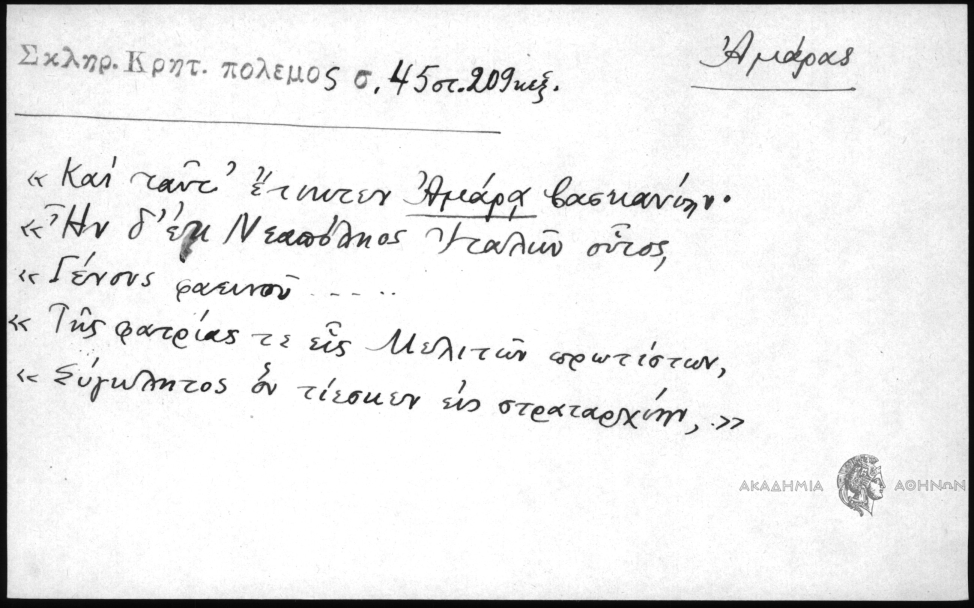 Σκληρ. Κρητ. πολεμος σ. 45 στ. 209 κεξ.
Ἀμάρας
« Καί ταῦτ' ἔτικτεν Ἀμάρᾳ βασκανίην·
« Ἦν δ' ἐκ Νεαπόληος Ἰταλῶν οὗτος,
« Γένους φαεινοῦ .....
« Τῆς φατρίας τε εἷς Μελιτῶν πρωτίστων,
« Σύγκλητος ὅν τίεσκεν εἰς στραταρχίην, »
ΑΚΑΔΗΜΙΑ ΑΘΗΝΩΝ